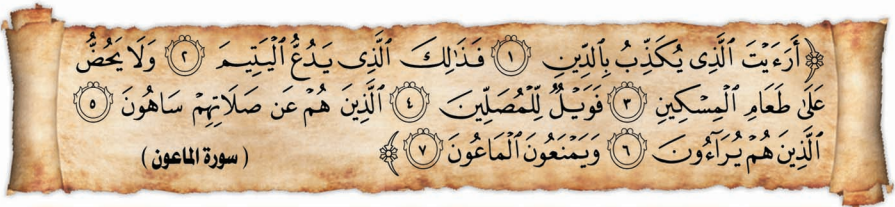 ﴿ أَرَءَيْتَ ٱلَّذِى يُكَذِّبُ بِٱلدِّينِ ١ فَذَٰلِكَ ٱلَّذِى يَدُعُّ ٱلْيَتِيمَ ٢ وَلَا يَحُضُّ
عَلَىٰ طَعَامِ ٱلْمِسْكِينِ ٣ فَوَيْلٌ لِّلْمُصَلِّينَ ٤ ٱلَّذِينَ هُمْ عَن صَلَاتِهِمْ سَاهُونَ ٥
ٱلَّذِينَ هُمْ يُرَآءُونَ ٦ وَيَمْنَعُونَ ٱلْمَاعُونَ ٧ ﴾ (سورة الماعون)